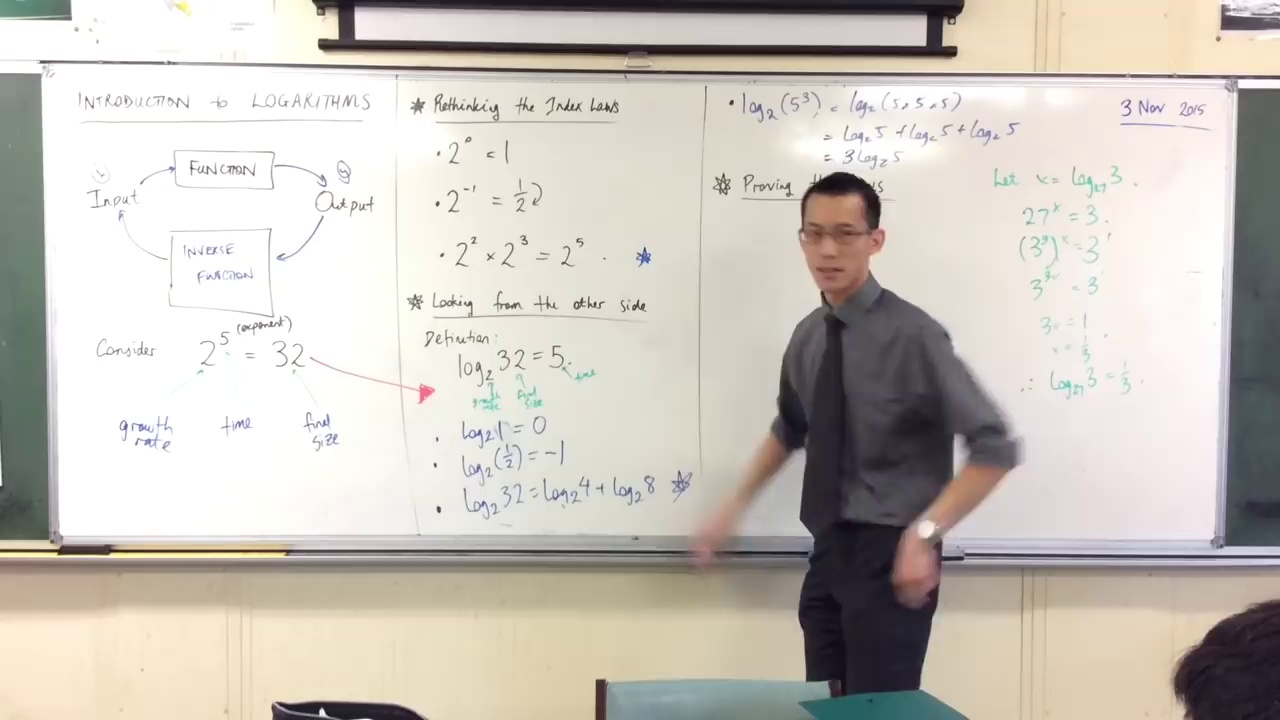 INTRODUCTION to LOGARITHMS
FUNCTION
Input
Output
INVERSE
FUNCTION
(exponent)
Consider 2⁵ = 32
growth rate
time
final size
* Rethinking the Index Laws
• 2⁰ = 1
• 2⁻¹ = 1/2
• 2² × 2³ = 2⁵ . *
* Looking from the other side
Definition:
log₂ 32 = 5.
time
growth rate
final size
• log₂ 1 = 0
• log₂ (1/2) = -1
• log₂ 32 = log₂ 4 + log₂ 8 *
• log₂ (5³) = log₂ (5 × 5 × 5)
= log₂ 5 + log₂ 5 + log₂ 5
= 3 log₂ 5
* Proving
3 Nov 2015
Let x = log₂₇ 3 .
27ˣ = 3 .
(3³)ˣ = 3¹
3³ˣ = 3¹
3x = 1
x = 1/3
∴ log₂₇ 3 = 1/3 .